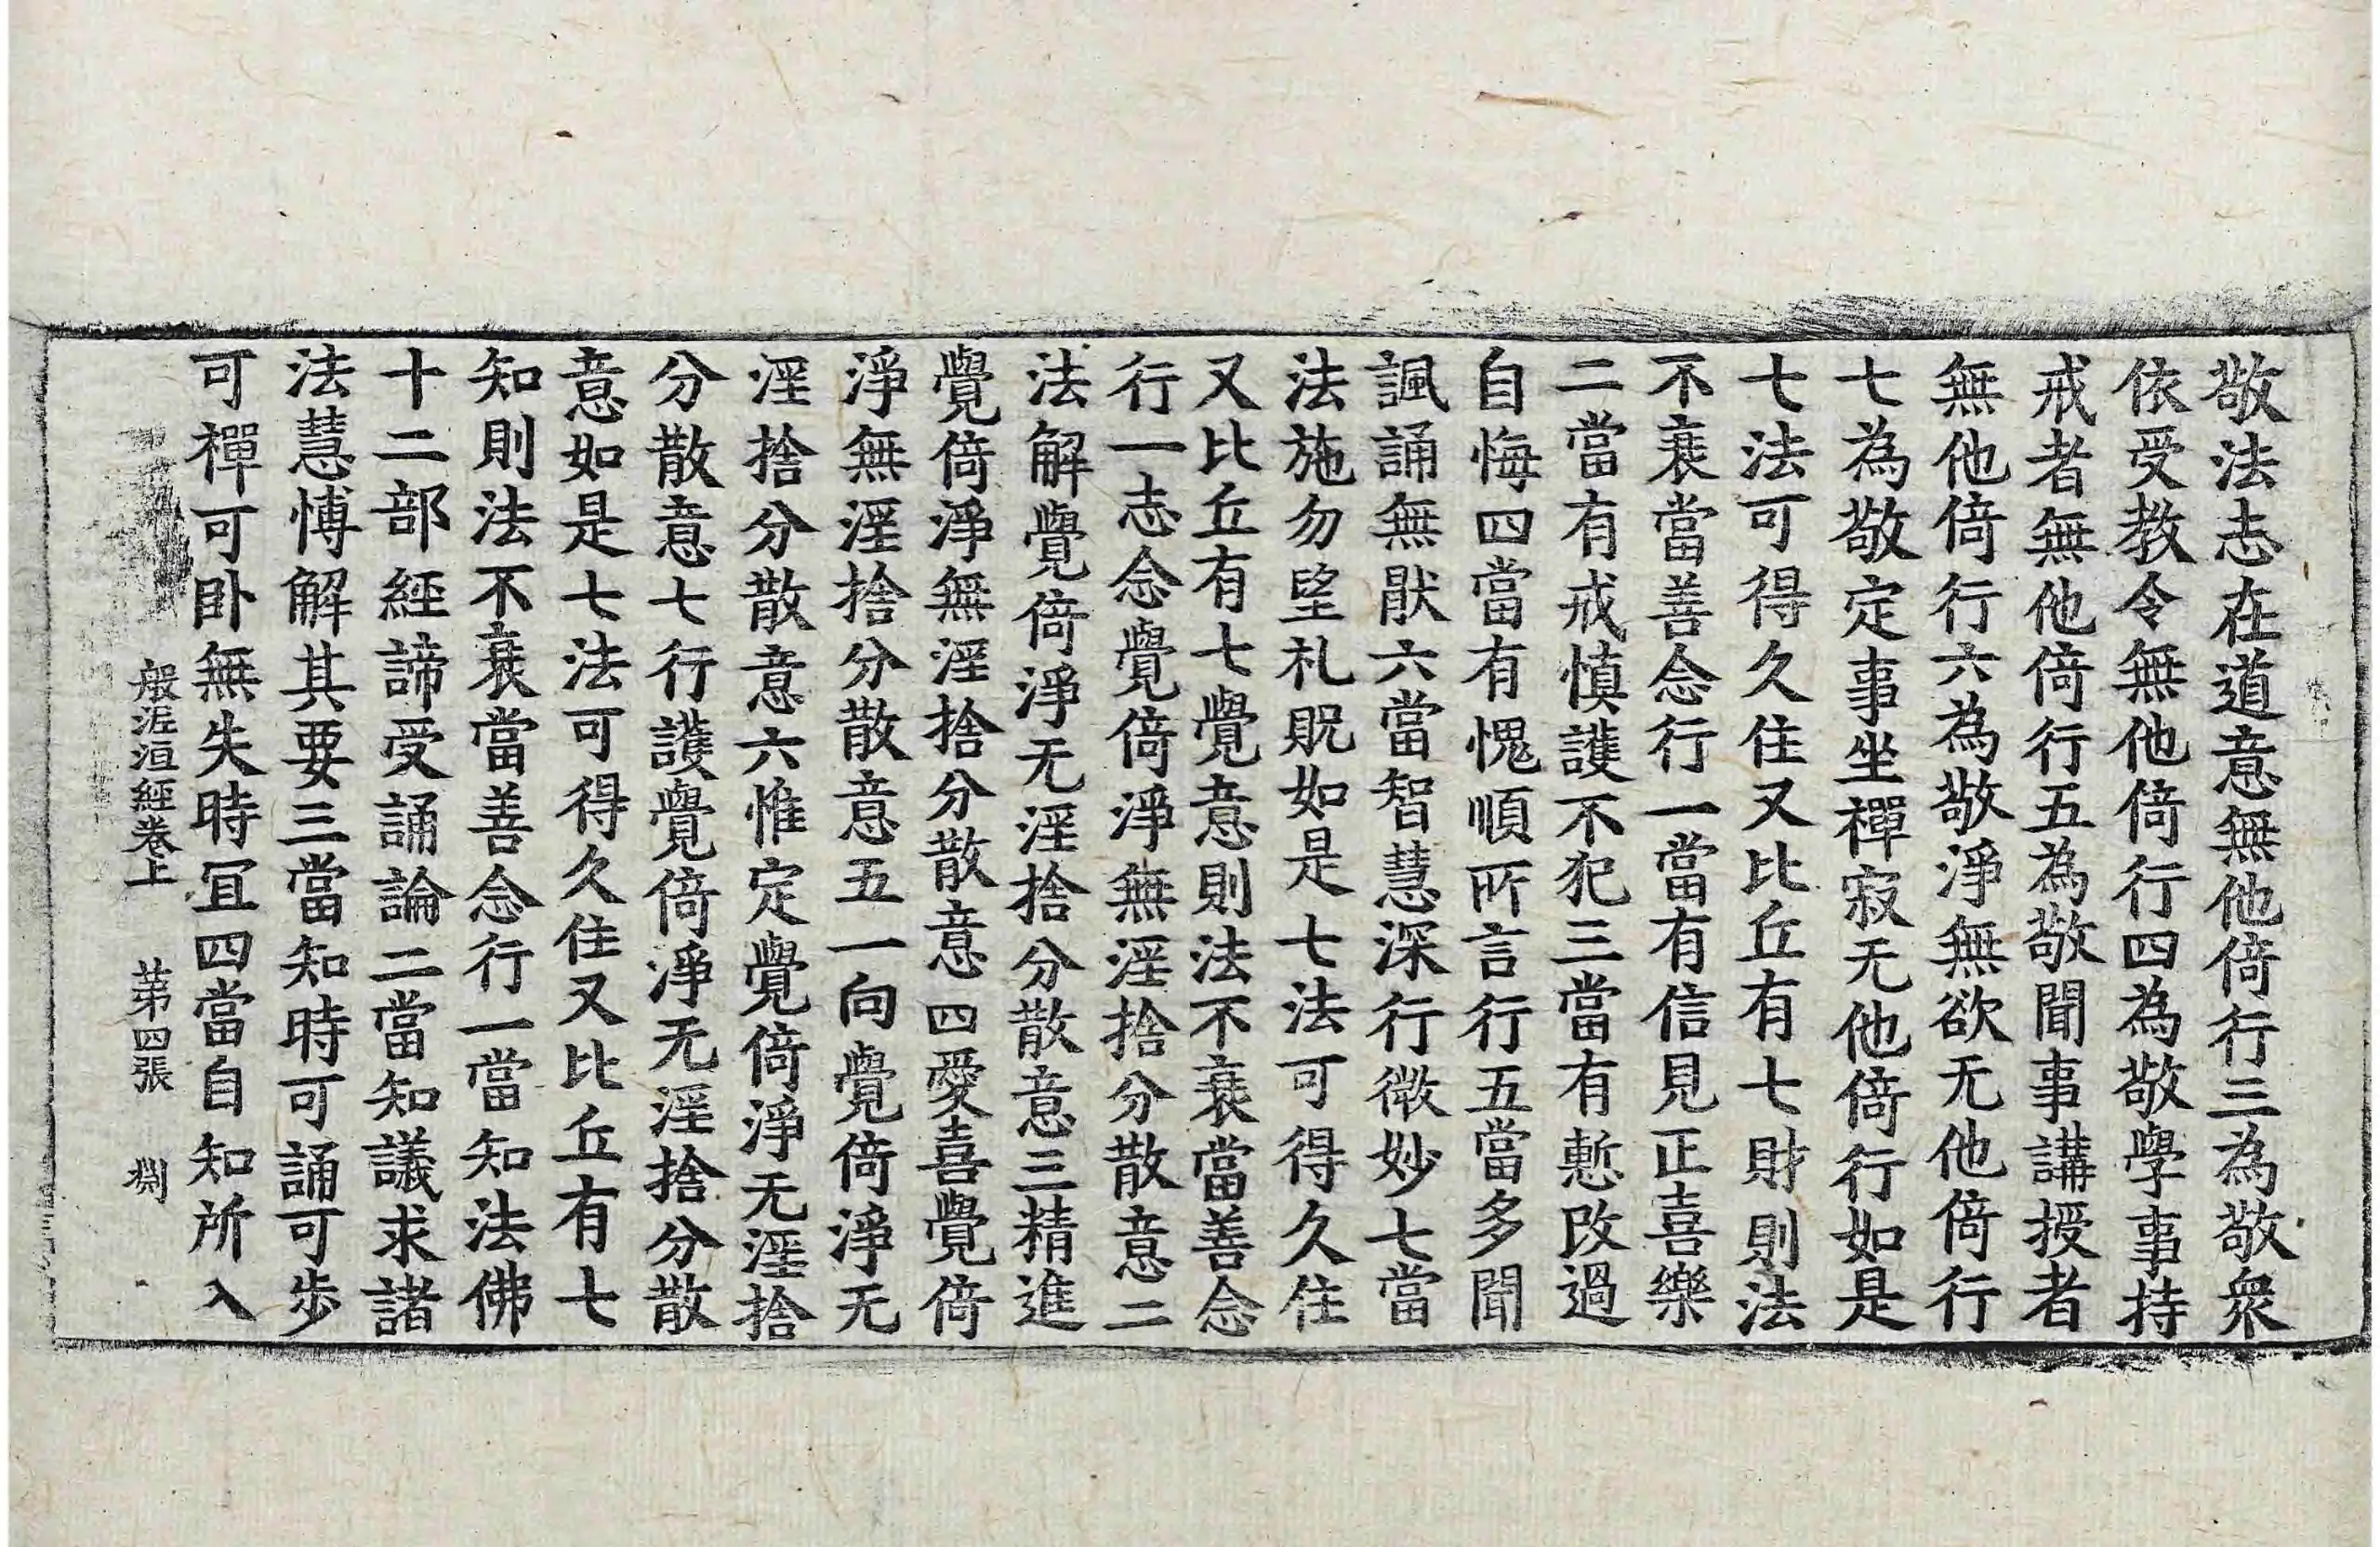 敬法志在道意無他倚行三為敬衆
依受教令無他倚行四為敬學事持
戒者無他倚行五為敬聞事講授者
無他倚行六為敬淨無欲无他倚行
七為敬定事坐禪寂无他倚行如是
七法可得久住又比丘有七財則法
不衰當善念行一當有信見正喜樂
二當有戒慎護不犯三當有慙改過
自悔四當有愧順所言行五當多聞
諷誦無猒六當智慧深行微妙七當
法施勿望礼貺如是七法可得久住
又比丘有七覺意則法不衰當善念
行一志念覺倚淨無淫捨分散意二
法解覺倚淨无淫捨分散意三精進
覺倚淨無淫捨分散意四愛喜覺倚
淨無淫捨分散意五一向覺倚淨无
淫捨分散意六惟定覺倚淨无淫捨
分散意七行護覺倚淨无淫捨分散
意如是七法可得久住又比丘有七
知則法不衰當善念行一當知法佛
十二部經諦受誦論二當知議求諸
法慧博解其要三當知時可誦可步
可禪可卧無失時冝四當自知所入
般泥洹經卷上 苐四張